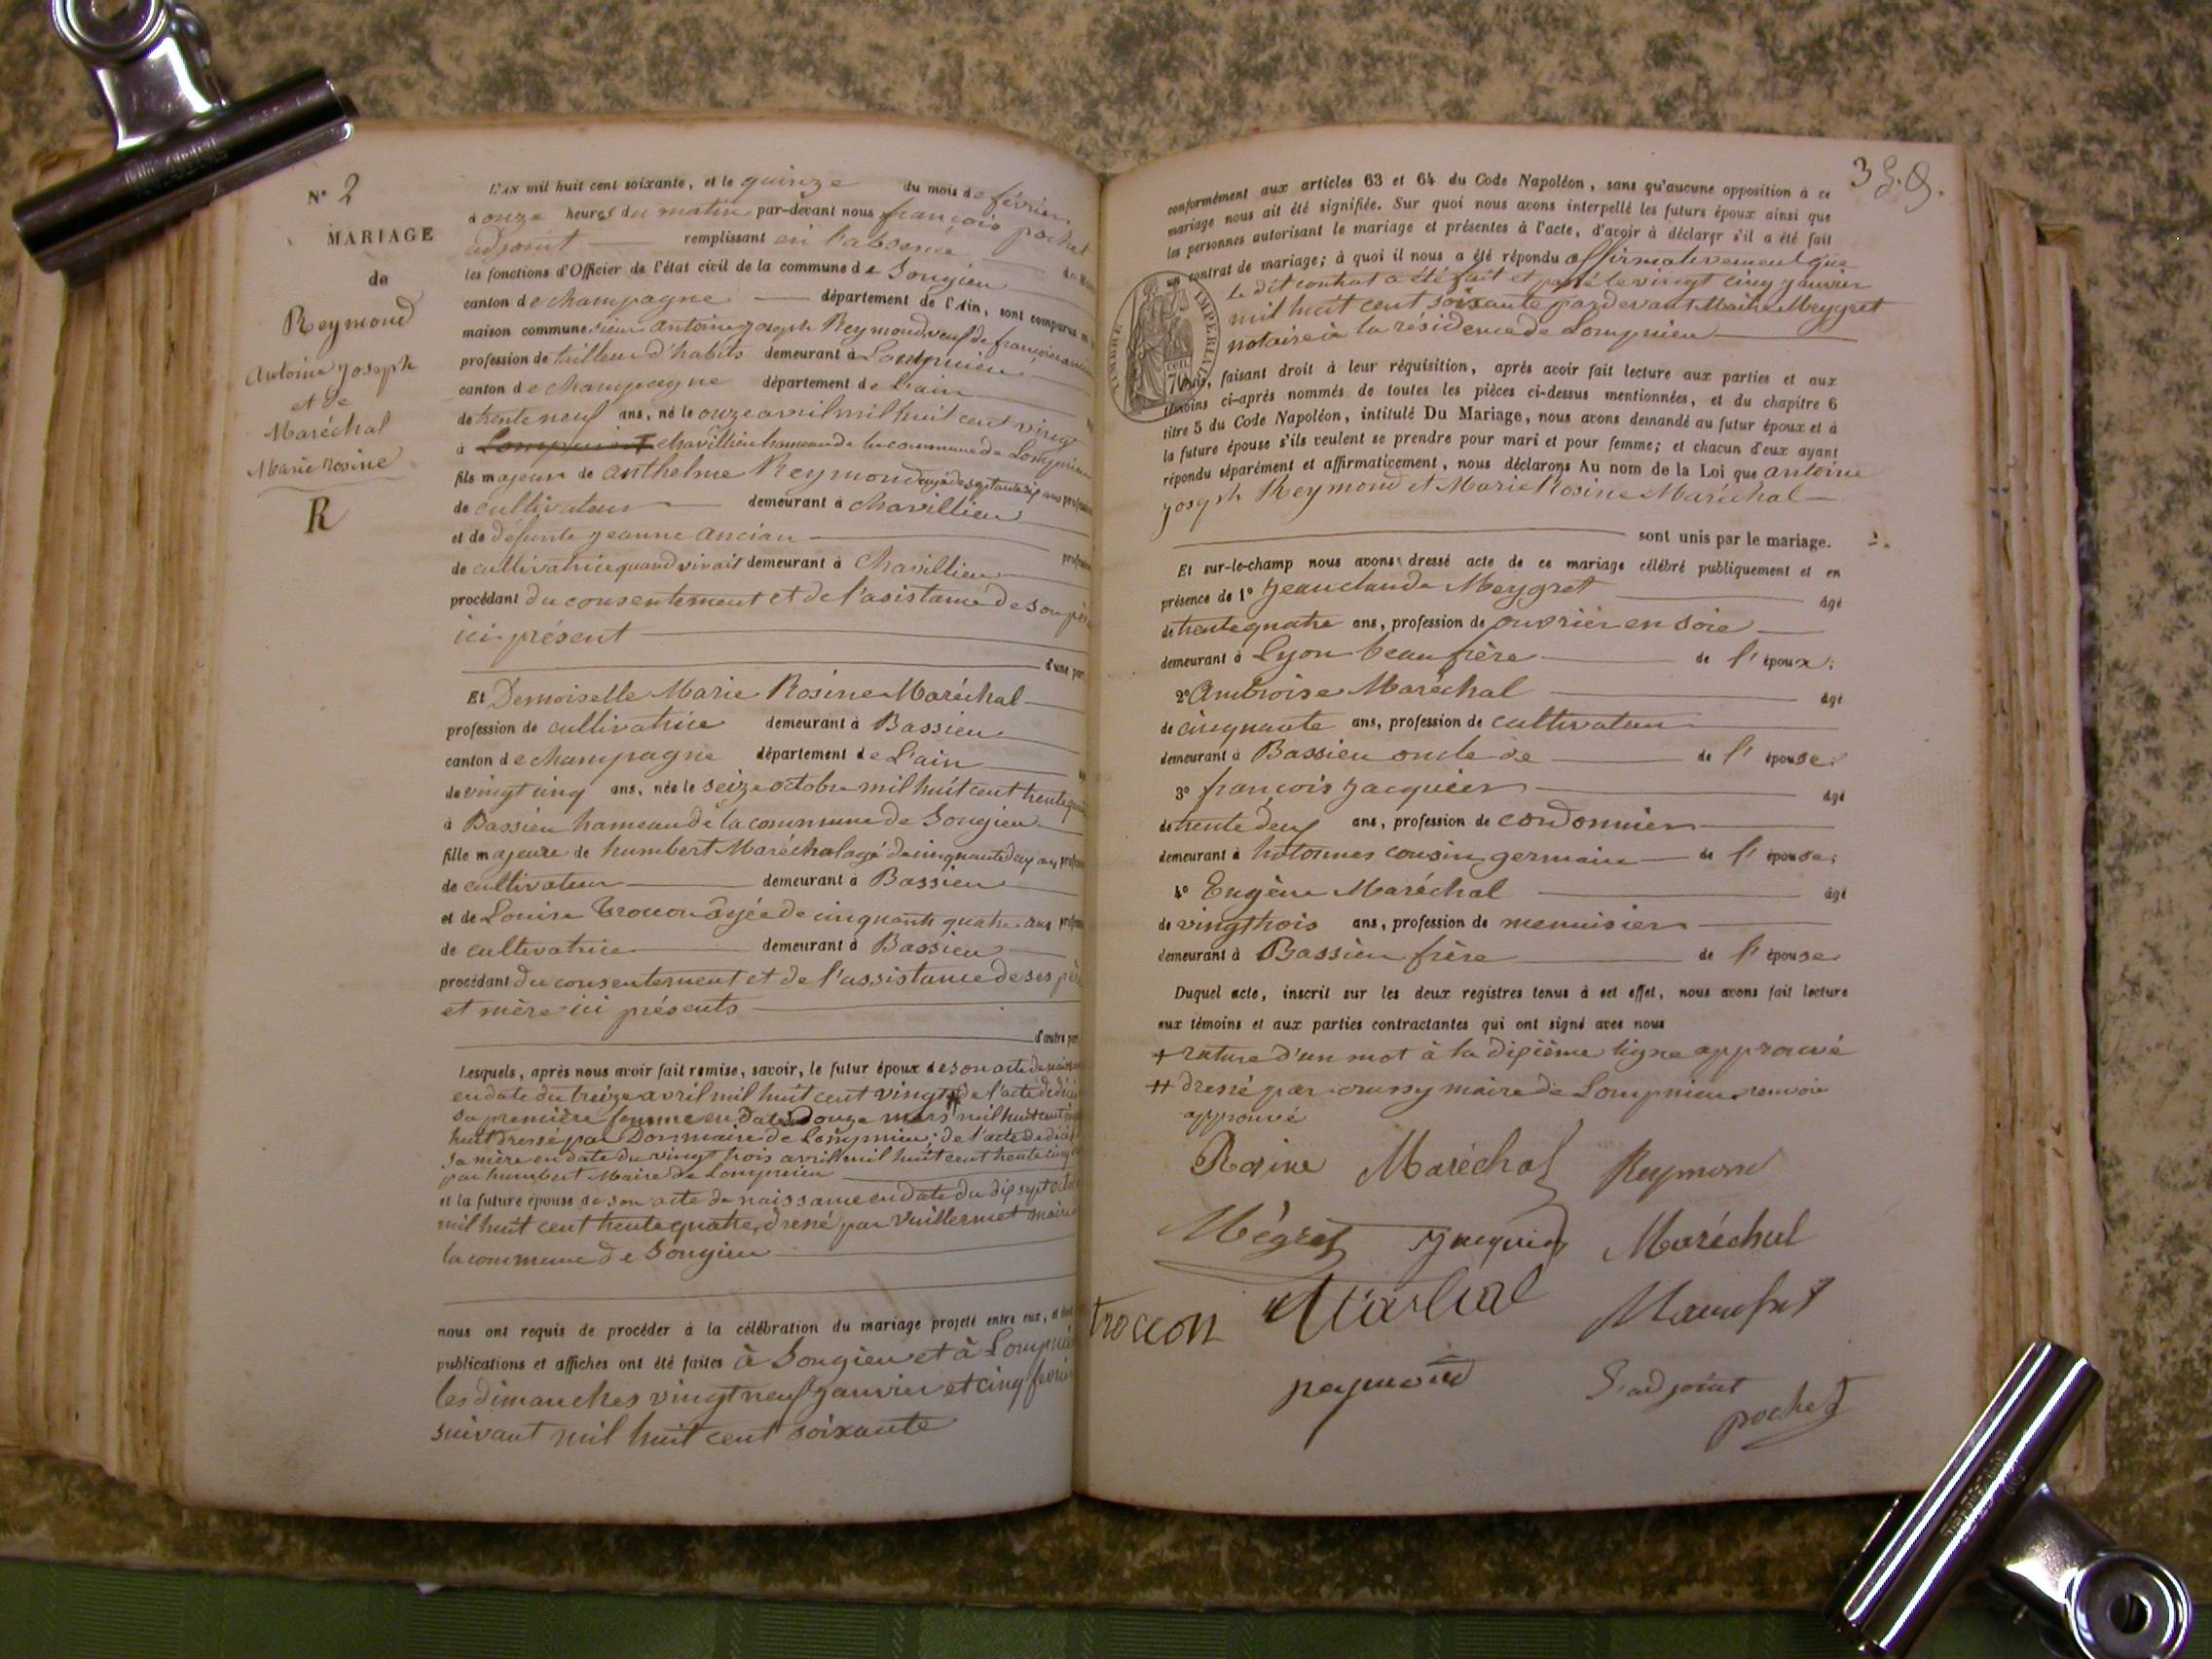 N° 2
MARIAGE
de
Reymond
Antoine Joseph
et de
Maréchal
Marie Rosine
R
L'AN mil huit cent soixante, et le quinze du mois de février
à onze heures du matin par-devant nous françois pochet
adjoint remplissant en l'absence du
les fonctions d'Officier de l'état civil de la commune de Songieu
canton de champagne département de l'Ain, sont comparus
maison commune, sieur Antoine Joseph Reymond veuf de françoise
profession de tailleur d'habits demeurant à Lompnieu
canton de champagne département de l'ain
de trente neuf ans, né le onze avril mil huit cent vingt
à chavillieu hameau de la commune de Lompnieu
fils majeur de anthelme Reymond agé de septante six ans
de cultivateur demeurant à chavillieu
et de défunte jeanne ancian
de cultivatrice quand vivait demeurant à Chavillieu
procédant du consentement et de l'asistance de son père
ici présent
d'une part
Et Demoiselle Marie Rosine Maréchal
profession de cultivatrice demeurant à Bassieu
canton de champagne département de L'ain
de vingt cinq ans, née le seize octobre mil huit cent trente
à Bassieu hameau de la commune de Songieu
fille majeure de humbert Maréchal agé de cinquante deux ans
de cultivateur demeurant à Bassieu
et de Louise Troccon âgée de cinquante quatre ans
de cultivatrice demeurant à Bassieu
procédant du consentement et de l'assistance de ses père
et mère ici présents
d'autre part
Lesquels, après nous avoir fait remise, savoir, le futur époux de son acte de
en date du treize avril mil huit cent vingt # de l'acte de
sa première femme en date douze mars mil huit cent
huit dressé par Dormaire de Lompnieu; de l'acte de
sa mère en date du vingt trois avril mil huit cent trente cinq
par humbert Maire de Lompnieu
et la future épouse de son acte de naissance en date du dix sept
mil huit cent trente quatre, dressé par Vuillermet maire
la commune de Songieu
nous ont requis de procéder à la célébration du mariage projeté entre eux,
publications et affiches ont été faites à Songieu et à Lompnieu
les dimanches vingt neuf janvier et cinq fevrier
suivant mil huit cent soixante
3
conformément aux articles 63 et 64 du Code Napoléon, sans qu'aucune opposition à ce
mariage nous ait été signifiée. Sur quoi nous avons interpellé les futurs époux ainsi que
les personnes autorisant le mariage et présentes à l'acte, d'avoir à déclarer s'il a été fait
un contrat de mariage; à quoi il nous a été répondu affirmativement que
le dit contrat a été fait et passé le vingt cinq janvier
mil huit cent soixante pardevant Maitre Meygret
notaire à la résidence de Lompnieu
TIMBRE IMPÉRIAL
70 cen
Puis, faisant droit à leur réquisition, après avoir fait lecture aux parties et aux
témoins ci-après nommés de toutes les pièces ci-dessus mentionnées, et du chapitre 6
titre 5 du Code Napoléon, intitulé Du Mariage, nous avons demandé au futur époux et à
la future épouse s'ils veulent se prendre pour mari et pour femme; et chacun d'eux ayant
répondu séparément et affirmativement, nous déclarons Au nom de la Loi que antoine
joseph Reymond et Marie Rosine Maréchal
sont unis par le mariage.
Et sur-le-champ nous avons dressé acte de ce mariage célébré publiquement et en
présence de 1° Jean claude Meygret âgé
de trente quatre ans, profession de ouvrier en soie
demeurant à Lyon beau frère de l'époux;
2° Ambroise Maréchal âgé
de cinquante ans, profession de cultivateur
demeurant à Bassieu oncle de de l'épouse;
3° françois Jacquier âgé
de trente deux ans, profession de cordonnier
demeurant à hotonnes cousin germain de l'épouse;
4° Eugène Maréchal âgé
de vingt trois ans, profession de menuisier
demeurant à Bassieu frère de l'épouse
Duquel acte, inscrit sur les deux registres tenus à cet effet, nous avons fait lecture
aux témoins et aux parties contractantes qui ont signé avec nous
+ rature d'un mot à la dixième ligne approuvé
# dressé par crussy maire de Lompnieu renvoi
approuvé
Rosine Maréchal Reymond
Mégret Jacquier Maréchal
troccon Maréchal
reymond L'adjoint
pochet